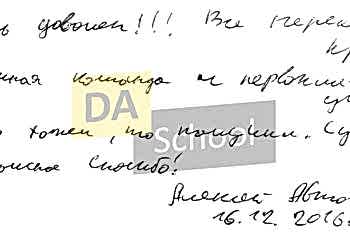 ь доволен!!! Все
нная команда и первокл
DA
School
о хотел, то получил. Су
спасибо!
Алексей Авто
16.12.2016г